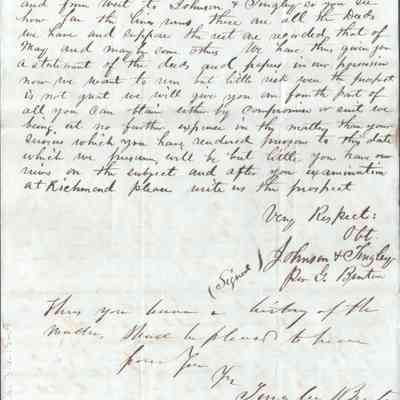 and from West to Johnson & Tingley so you see
how far the lines runs these are all the Deeds
we have and suppose the rest are recorded, that of
May and maybe some others We have thus given you
a statement of the deeds and papers in our possession
now we want to run but little risk even the prospect
is not great we will give you one fourth part of
all you can obtain either by compromise or suit we
being at no further expense in this matter than your
services which you have rendered previous to this date
which we presume will be but little you have our
views on the subject and after your examination
at Richmond please write us the prospect
Very Respect:
Obt
(Signed) Johnson & Tingley
Per E. Benton
Thus you have a history of the
matter. Shall be pleased to hear
from you
Yr